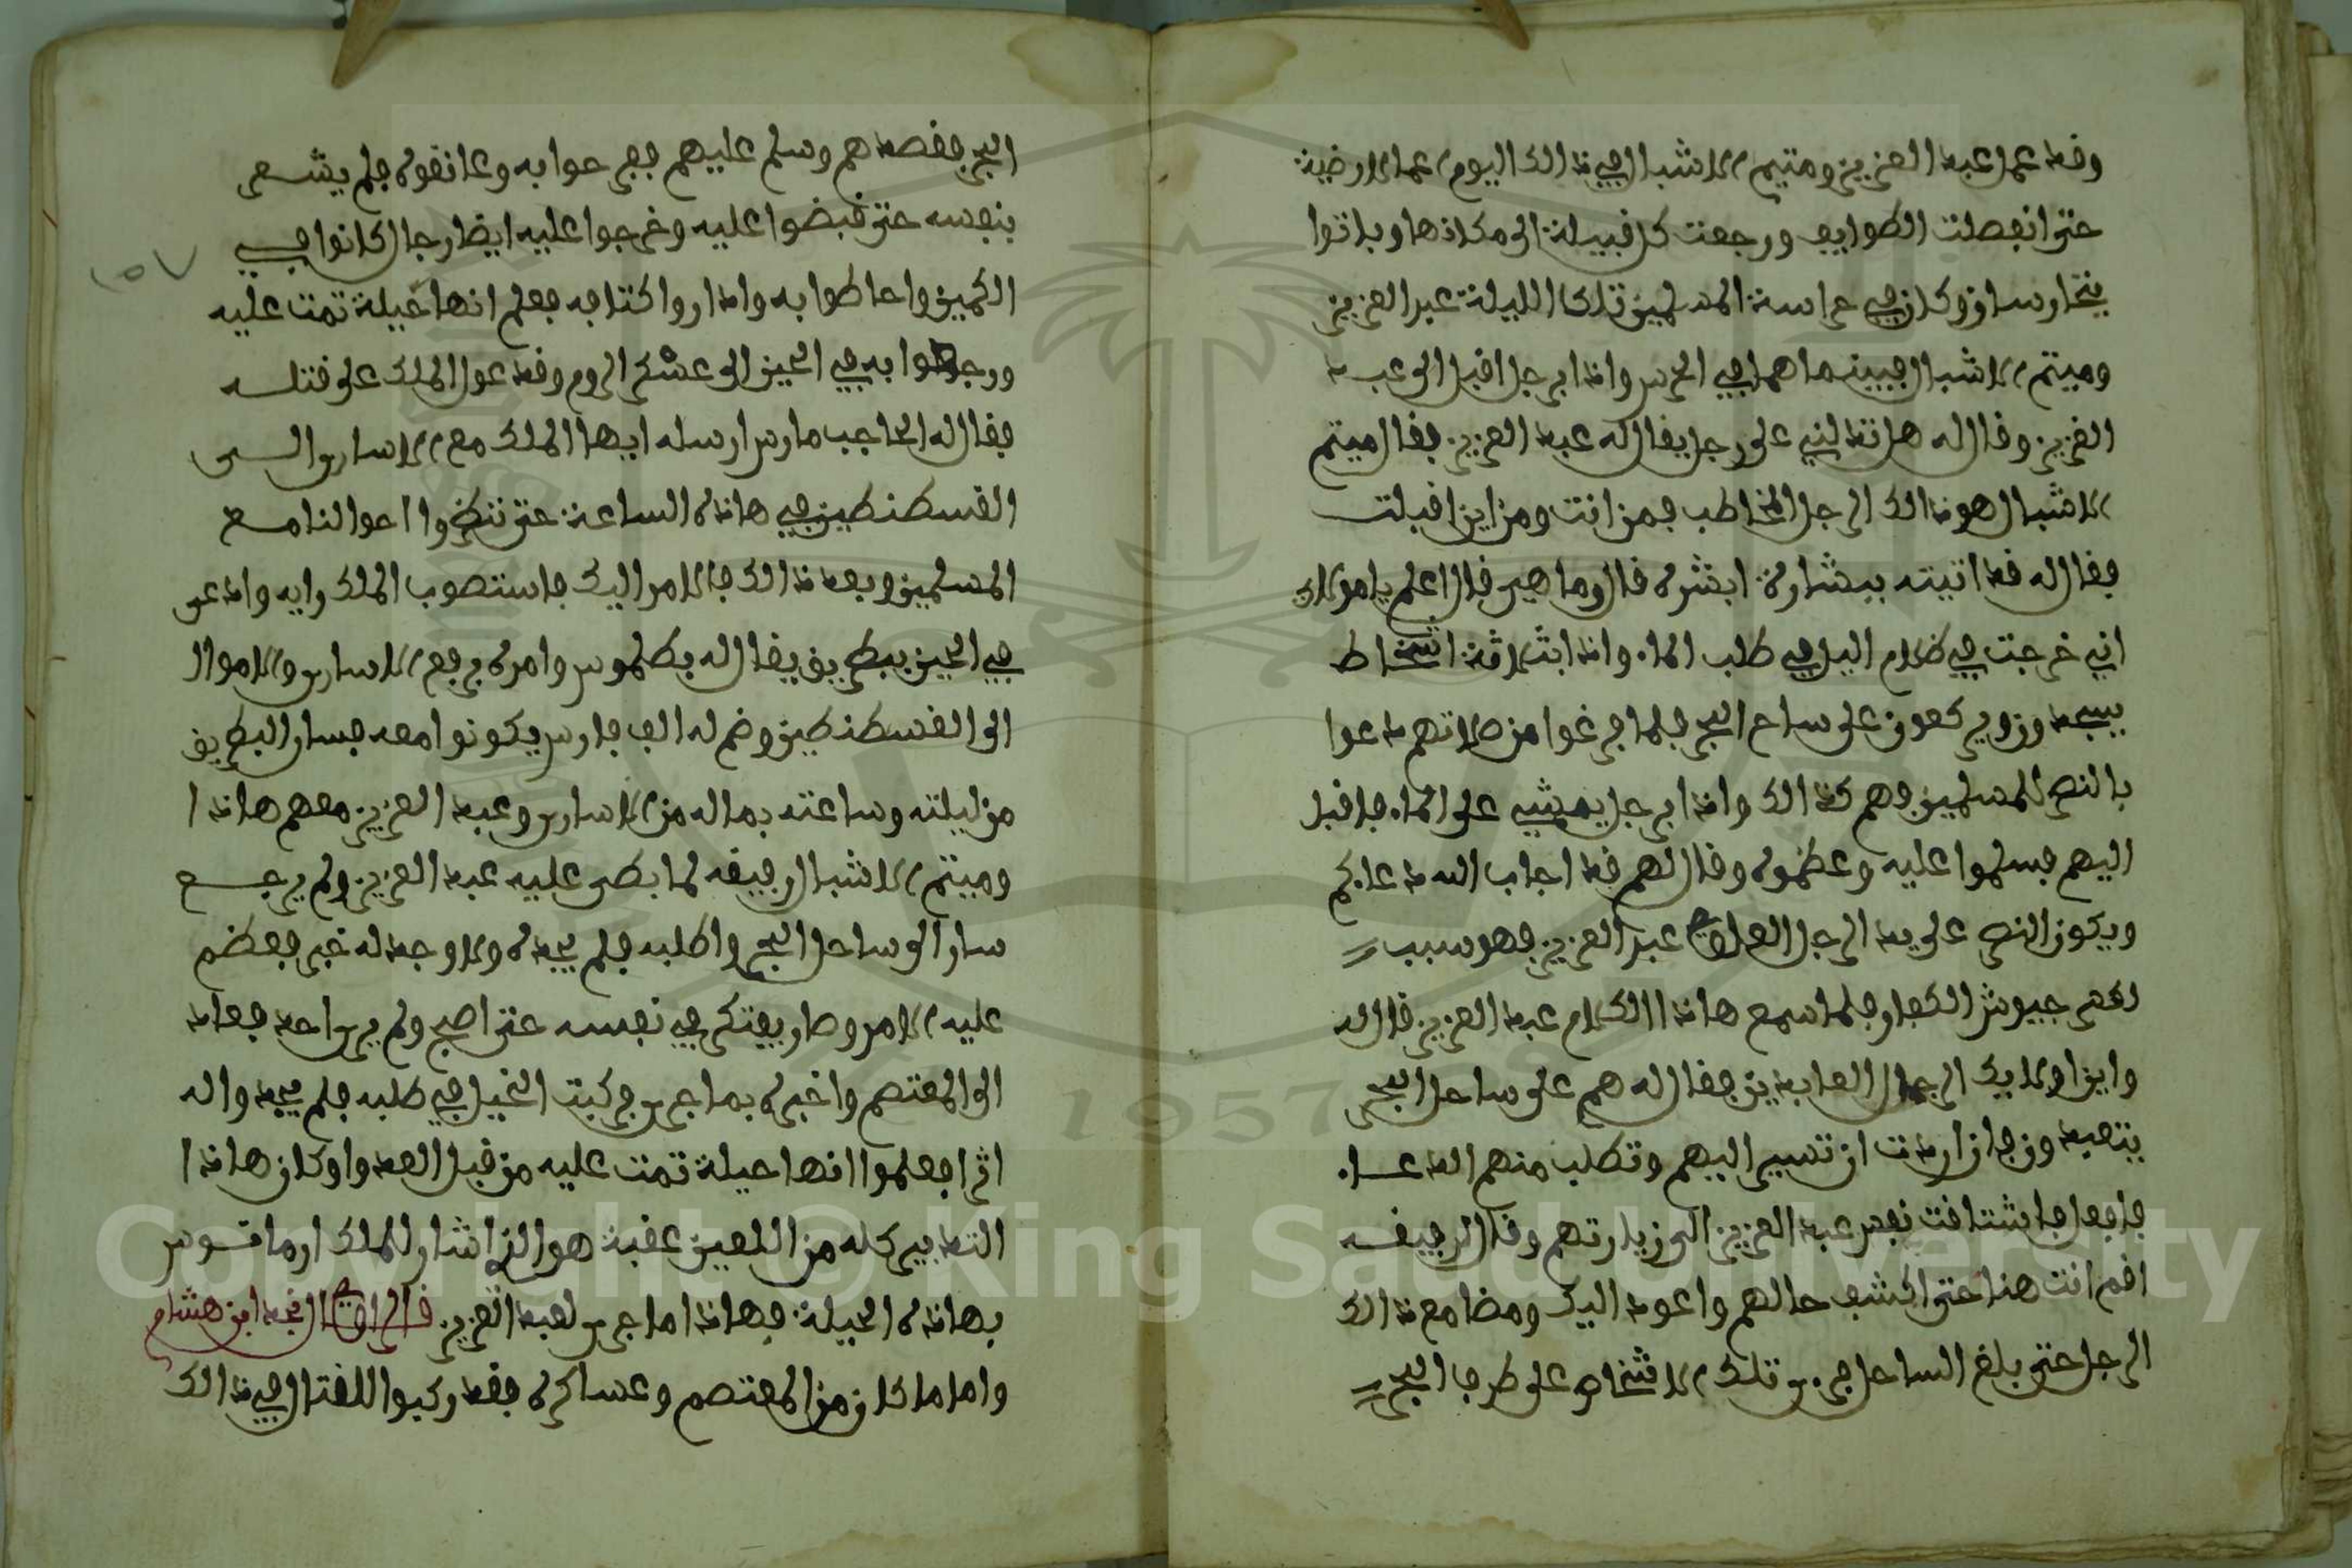 وقد عمل عبد العزيز وميتم الاشبال في ذالك اليوم اعمالا رضية
حتى انفصلت الطوايف ورجعت كل قبيلة الى مكانها وباتوا
يتحارسان وكان في حراسة المسلمين تلك الليلة عبد العزيز
وميتم الاشبال فبينما هما في الحرس واذا برجل اقبل الى عبد
العزيز وقال له هل تدلني على رجل يقال له عبد العزيز فقال ميتم
الاشبال هو ذالك الرجل المخاطب فمن انت ومن اين اقبلت
فقال له قد اتيته ببشارة ابشره قال وما هي قال اعلم يا مولاي
اني خرجت في ظلام اليل في طلب الماء واذا بثلاثة اشخاط
يسجدون ويركعون على ساحل البحر فلما فرغوا من صلاتهم دعوا
بالنصر للمسلمين وهم كذالك واذا برجل يمشي على الماء فاقبل
اليهم فسلموا عليه وعظموه وقال لهم قد اجاب الله دعاءكم
ويكون النصر على يد الرجل العراقي عبد العزيز فهو سبب
لقهر جيوش الكفار فلما سمع هاذا الكلام عبد العزيز قال له
واين اولايك الرجال العابدين فقال له هم على ساحل البحر
يتعبدون فان اردت ان تسير اليهم وتطلب منهم الدعاء
فافعل فاشتاقت نفس عبد العزيز الى زيارتهم وقال لرفيقه
اقم انت هنا حتى اكشف حالهم واعود اليك ومضا مع ذالك
الرجل حتى بلغ الساحل فرءى تلك الاشخاص على طرف البحر
البحر فقصدهم وسلم عليهم فردوا جوابه وعانقوه فلم يشعر
بنفسه حتى قبضوا عليه وخرجوا عليه ايضا رجال كانوا في
الكمين واحاطوا به واداروا كتافه فعلم انها حيلة تمت عليه
ورجعوا به في الحين الى عسكر الروم وقد عول الملك على قتله
فقال له الحاجب مارس ارسله ايها الملك مع الاسارى الى
القسطنطين في هاذه الساعة حتى تنظروا احوالنا مع
المسلمين وبعد ذالك فالامر اليك فاستصوب الملك رايه وادعى
في الحين ببطريق يقال له بطلموس وامره برفع الاسارى والاموال
الى القسطنطين وضم له الف فارس يكونوا معه فسار البطريق
من ليلته وساعته بماله من الاسارى وعبد العزيز معهم هاذا
وميتم الاشبال رفيقه لما بطى عليه عبد العزيز ولم يرجع
سار الى ساحل البحر واطلبه فلم يجده ولا وجد له خبر فعظم
عليه الامر وصار يفتكر في نفسه حتى اصبح ولم ير احد فعاد
الى المعتصم واخبره بما جرى فركبت الخيل في طلبه فلم يجدوا له
اثرا فعلموا انها حيلة تمت عليه من قبل العدو وكان هاذا
التدابير كله من اللعين عقبة هو الذي اشار للملك ارمانوس
بهاذه الحيلة فهاذا ما جرى لعبد العزيز قال الراوي النجد ابن هشام
واما ما كان من المعتصم وعساكره فقد ركبوا للقتال في ذالك
١٥٧